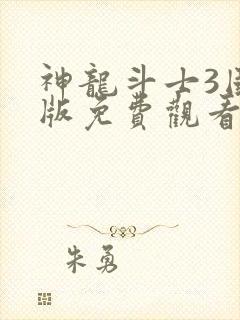 神龍斗士3
版免費觀看
朱勇